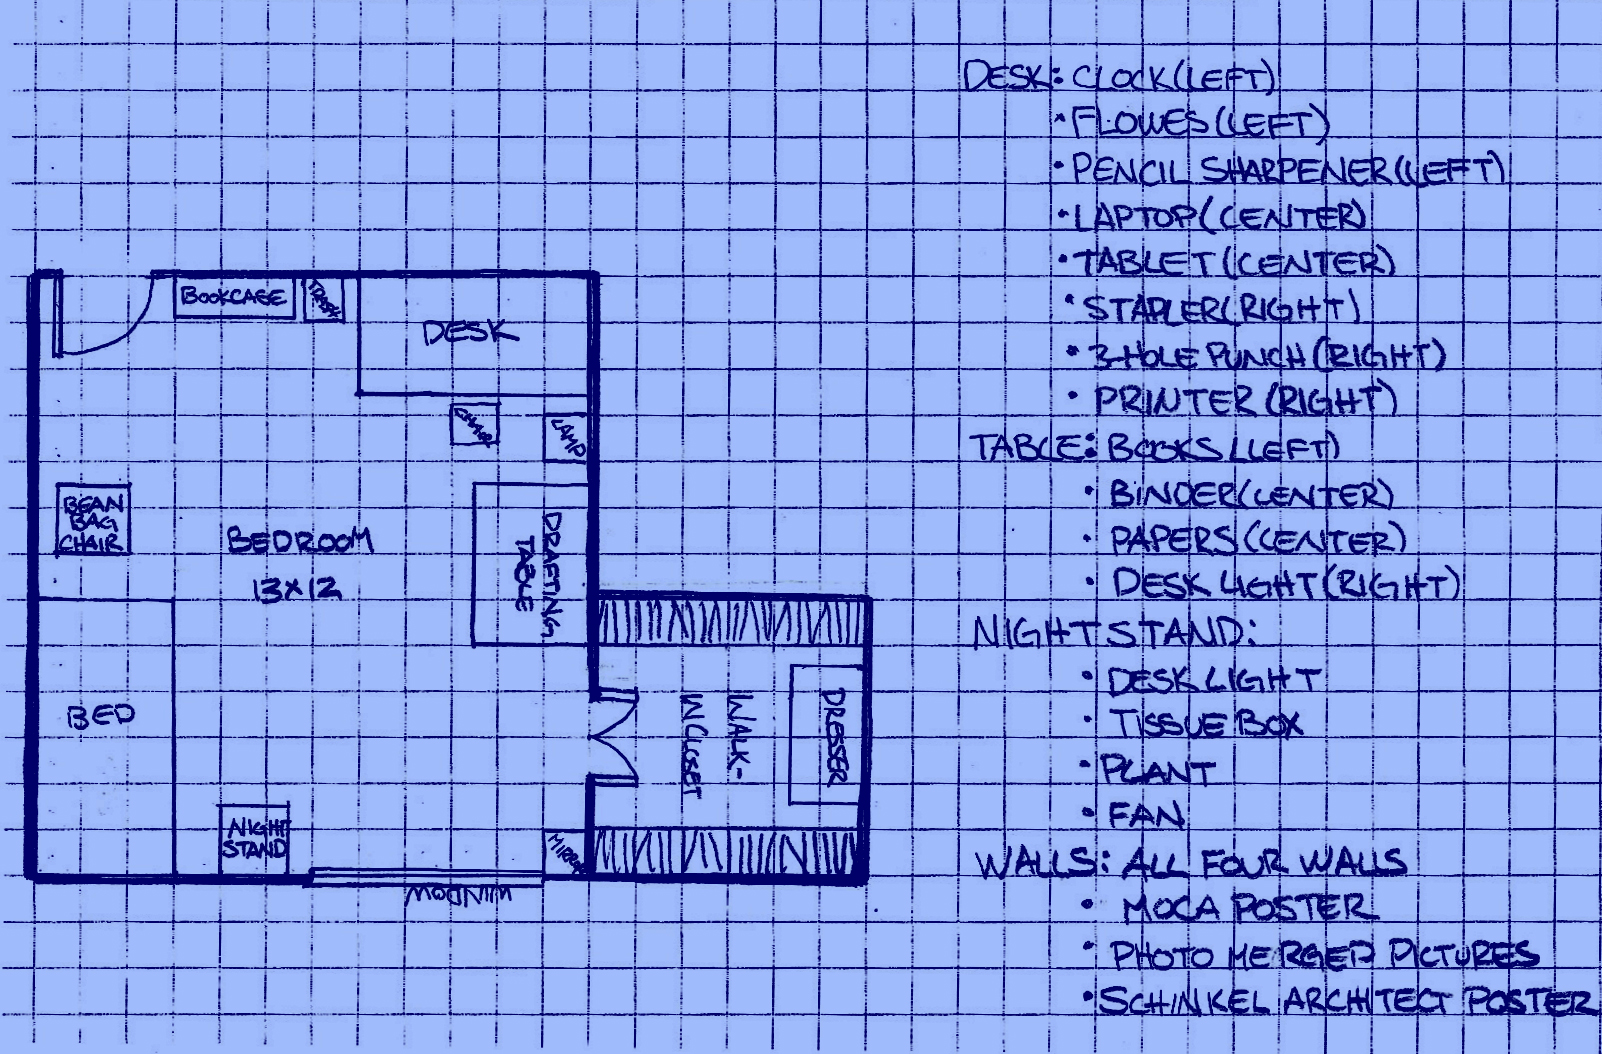 DESK: CLOCK(LEFT)
• FLOWES(LEFT)
• PENCIL SHARPENER(LEFT)
• LAPTOP(CENTER)
• TABLET(CENTER)
• STAPLER(RIGHT)
• 3-HOLE PUNCH(RIGHT)
• PRINTER(RIGHT)
TABLE: BOOKS(LEFT)
• BINDER(CENTER)
• PAPERS(CENTER)
• DESK LIGHT(RIGHT)
NIGHTSTAND:
• DESK LIGHT
• TISSUE BOX
• PLANT
• FAN
WALLS: ALL FOUR WALLS
• MOCA POSTER
• PHOTO MERGED PICTURES
• SCHINKEL ARCHITECT POSTER
BOOKCASE
TRASH
DESK
CHAIR
LAMP
BEAN
BAG
CHAIR
BEDROOM
13X12
DRAFTING
TABLE
BED
NIGHT
STAND
WINDOW
MIRROR
WALK-
IN CLOSET
DRESSER